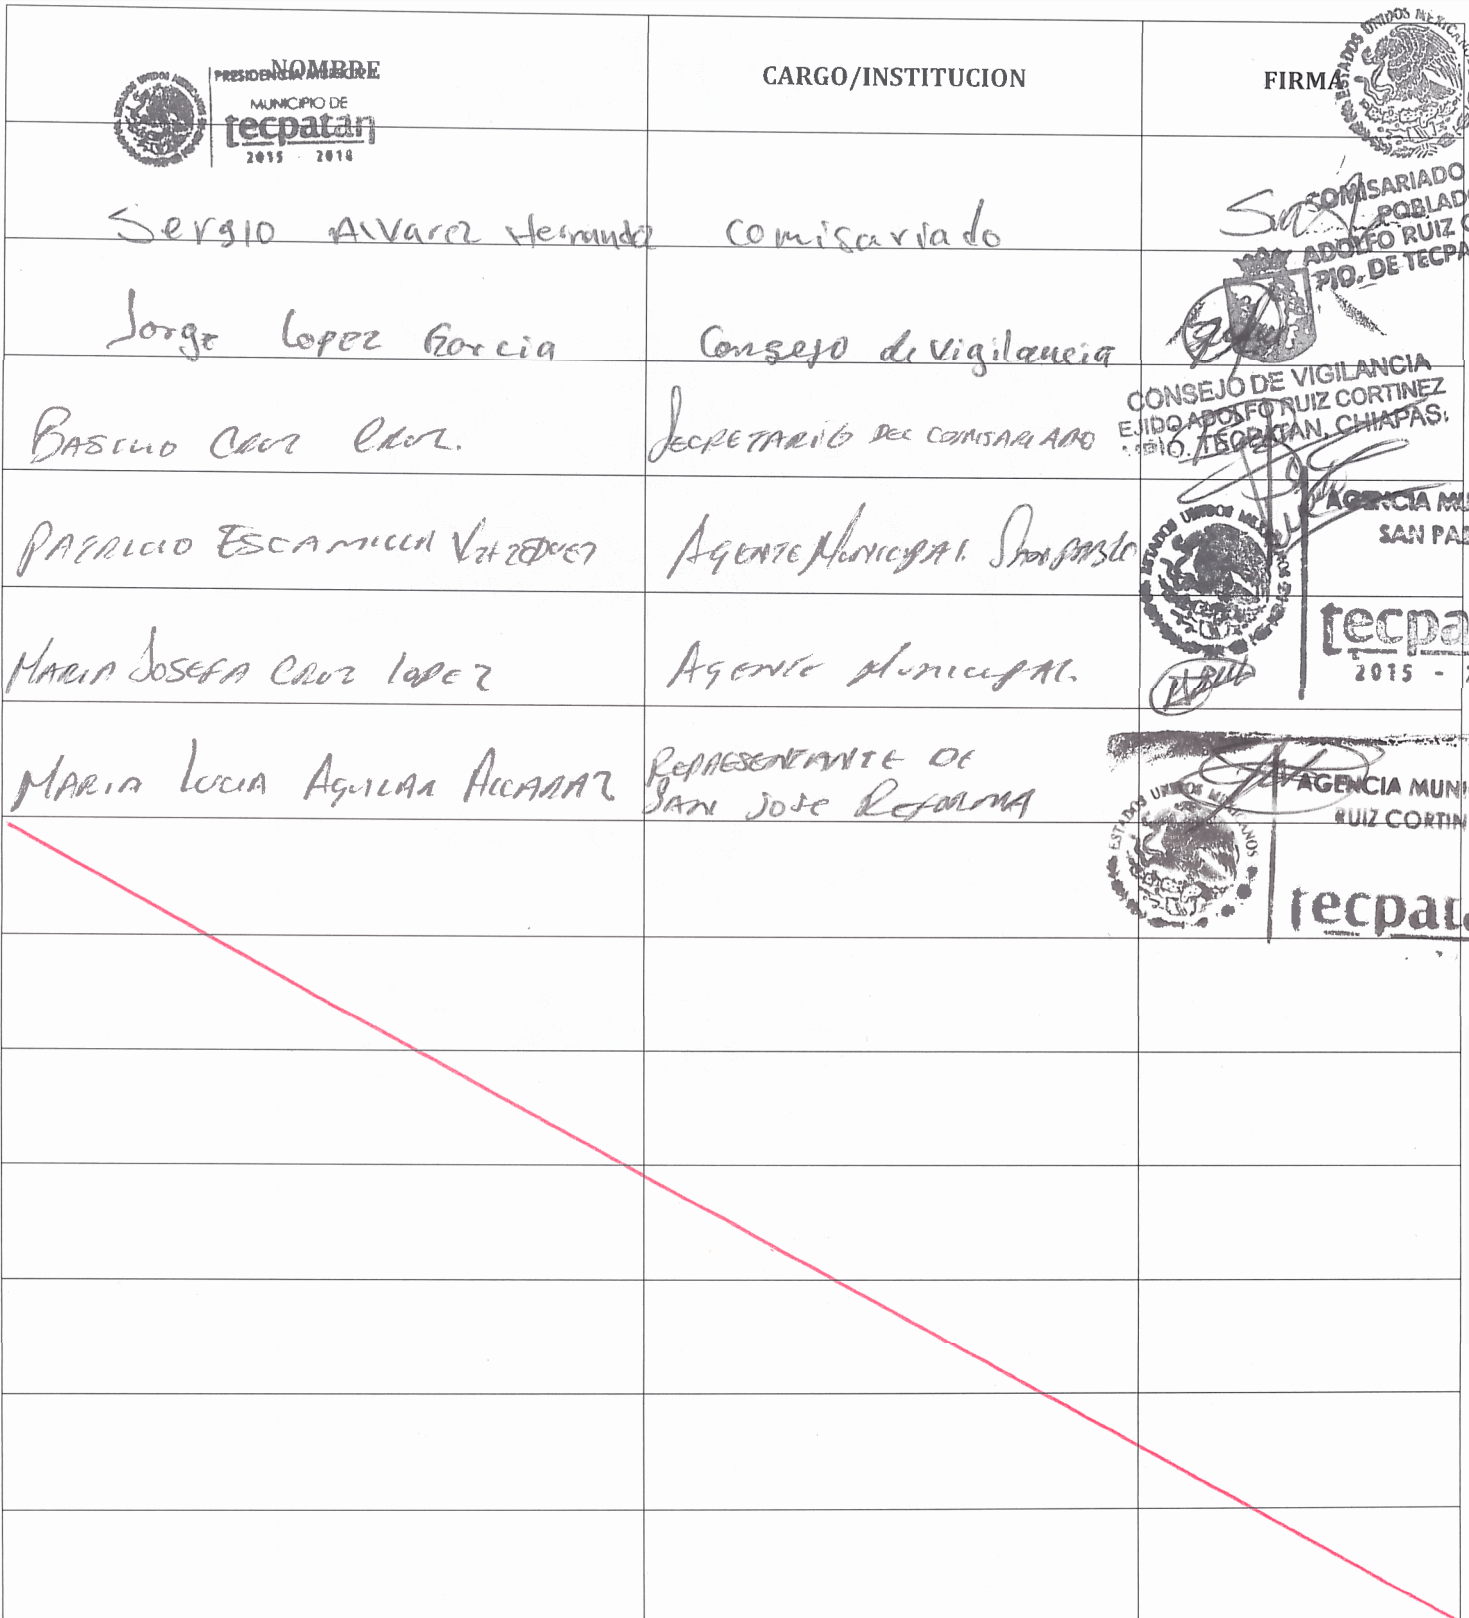 NOMBRE CARGO/INSTITUCION FIRMA
PRESIDENCIA MUNICIPAL
MUNICIPIO DE
tecpatán
2015 - 2018
ESTADOS UNIDOS MEXICANOS
Sergio Alvarez Hernandez Comisariado
COMISARIADO
POBLADO
ADOLFO RUIZ C
PIO. DE TECPA
Jorge Lopez Garcia Consejo de Vigilancia
CONSEJO DE VIGILANCIA
EJIDO ADOLFO RUIZ CORTINEZ
MPIO. TECPATAN, CHIAPAS.
BASILIO CRUZ CRUZ. SECRETARIO DEL COMISARIADO
PATRICIO ESCAMILLA VAZQUEZ AGENTE MUNICIPAL SAN PABLO
AGENCIA MU
SAN PAB
ESTADOS UNIDOS MEXICANOS
tecpa
2015 -
MARIA JOSEFA CRUZ LOPEZ AGENTE MUNICIPAL.
MARIA LUCIA AGUILAR ALCARAZ REPRESENTANTE DE
SAN JOSE REFORMA
AGENCIA MUNI
RUIZ CORTIN
ESTADOS UNIDOS MEXICANOS
tecpata